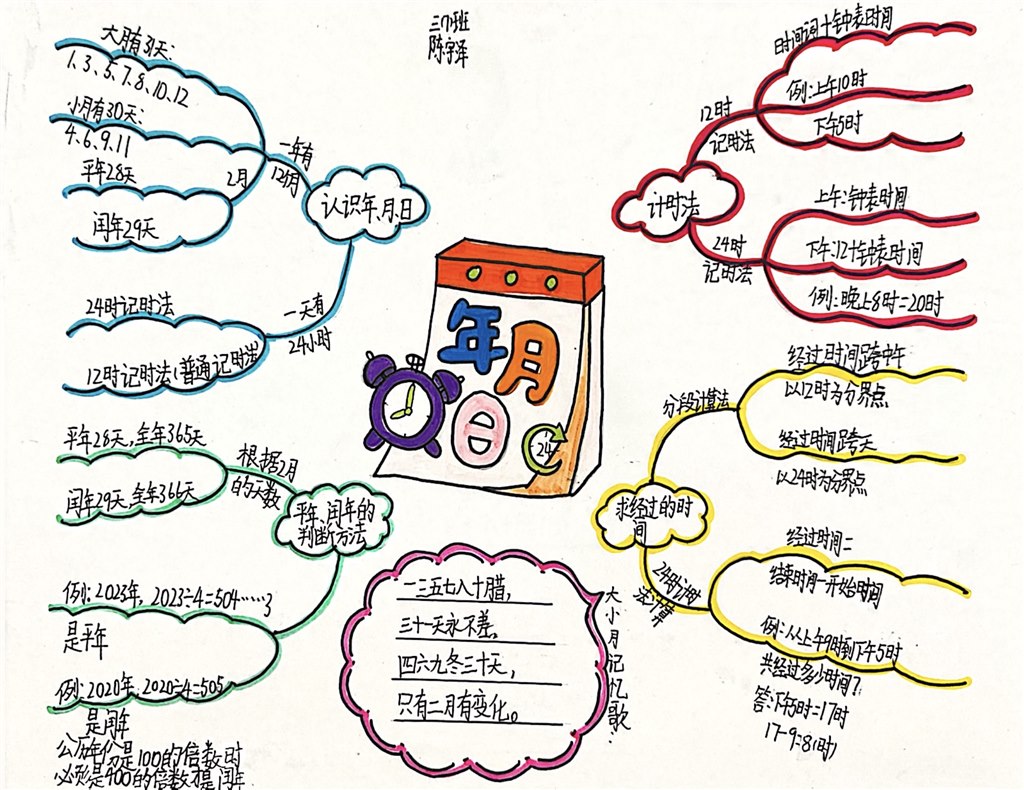 三(1)班
陈宇泽
大月有31天:
1、3、5、7、8、10、12
小月有30天:
4、6、9、11
平年28天
2月
闰年29天
一年有
12个月
认识年、月、日
24时记时法
12时记时法(普通记时法)
一天有
24小时
平年28天,全年365天
闰年29天,全年366天
根据2月
的天数
平年、闰年的
判断方法
例:2023年,2023÷4=504……3
是平年
例:2020年,2020÷4=505
是闰年
公历年份是100的倍数时
必须是400的倍数才是闰年
年月
日
24
一三五七八十腊,
三十一天永不差,
四六九冬三十天,
只有二月有变化。
大小月记忆歌
时间词+钟表时间
例:上午10时
下午5时
12时
记时法
计时法
24时
记时法
上午:钟表时间
下午:12+钟表时间
例:晚上8时=20时
经过时间跨中午
以12时为分界点
分段计算法
经过时间跨天
以24时为分界点
求经过的时
间
24时计时
法计算
经过时间=
结束时间-开始时间
例:从上午9时到下午5时
共经过多少时间?
答:下午5时=17时
17-9=8(时)